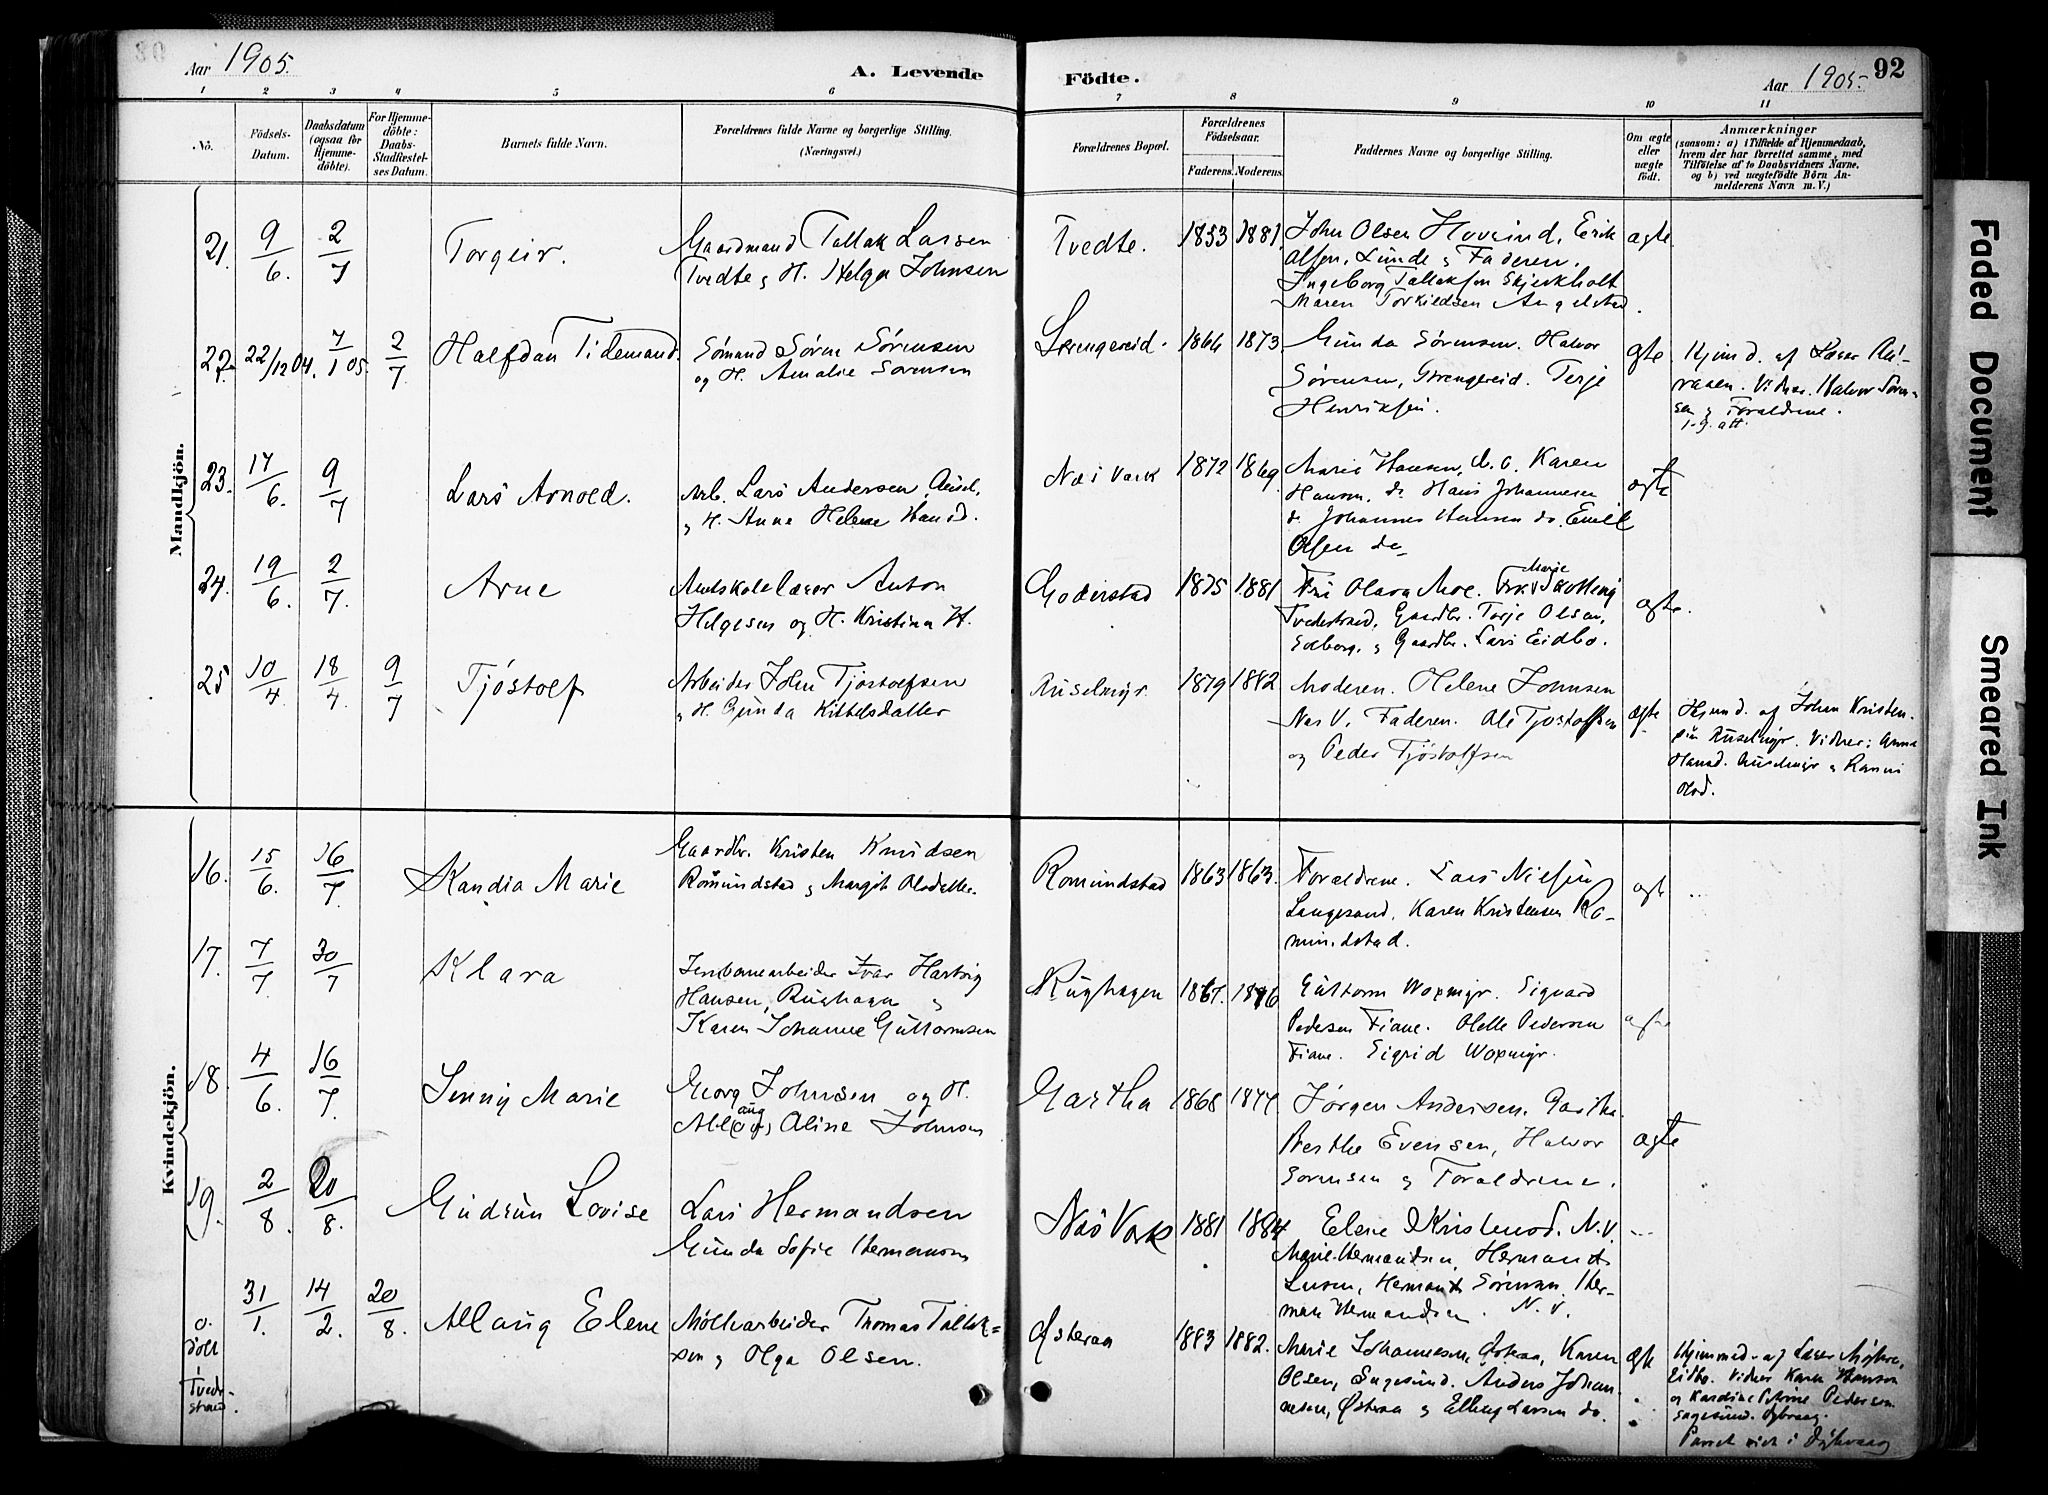 Aar 1905.
A. Levende Födte.
Aar 1905.
92
1 2 3 4 5 6 7 8 9 10 11
No.
Födsels-Datum.
Daabsdatum (ogsaa for Hjemmedöbte).
For Hjemmedöbte: Daabs-Stadfestelses Datum.
Barnets fulde Navn.
Forældrenes fulde Navne og borgerlige Stilling. (Næringsvei.)
Forældrenes Bopæl.
Forældrenes Födselsaar.
Faderens. Moderens.
Faddernes Navne og borgerlige Stilling.
Om ægte eller uægte födt.
Anmærkninger
(saasom: a) i Tilfælde af Hjemmedaab,
hvem der har forrettet samme, med
Tilföielse af to Daabsvidners Navne,
og b) ved uægtefödte Börn An-
melderens Navn m. V.)
Mandkjön.
21. 9/6. 2/7 Torgeir.
Gaardmand Tallak Larsen
Tvedte og H. Helga Johnsen
Tvedte. 1853 1881.
John Olsen Hovind, Erik
Olsen, Lunde og Faderen.
Ingeborg Tallaksen Skjerkholt
Maren Torkildsen Angelstad.
ægte
22. 22/12 04. 7/1 05. 2/7 Halfdan Tidemand.
Sömand Sören Sörensen
og H. Amalie Sorensen
Strengereid. 1866 1873.
Gunda Sørensen. Halvor
Sørensen, Strengereid. Terje
Henriksen.
ægte
Hjemd. af Læser
Vidner. Halvor Sören-
sen og Forældrene.
1-9. att.
23. 17/6. 9/7 Lars Arnold.
Arb. Lars Andersen
og H. Anne Helene Hansd.
Næs Værk 1872 1869.
Marie Hansen, N.V. Karen
Hansen, do Hans Johannesen
do. Johannes Hansen do. Emil
Olsen do
ægte
24. 19/6. 2/7. Arne
Amtskolelærer Anton
Helgesen og H. Kristina H.
Goderstad 1875 1881
Fru Olava Moe. Frk. Marie Skotting
Tvedestrand, Gaardbr. Terje Olsen,
Solberg, og Gaardbr. Lars Eidbo.
ægte.
25 10/4 18/4 9/7 Tjöstolf
Arbeider John Tjostolfsen
og H. Gunda Kittelsdatter
Ruselmyr. 1879 1882
Moderen. Helene Johnsen
Næs V. Faderen. Ole Tjostolfsen
og Peder Tjöstolfsen
ægte
Hjemd. af John Kristen-
sen Ruselmyr. Vidner: Anna
Hansd. Ruselmyr og
Olsd.
Kvindekjön.
16. 15/6. 16/7. Kandia Marie
Gaardbr. Kristen Knudsen
Romundstad og Margit Olsdatter.
Romundstad 1863 1863.
Forældrene. Lars Nilsen
Langesand, Karen Kristensen Ro-
mundstad.
ægte
17. 7/7. 30/7 Klara
Jernbanearbeider Ivar Hartvig
Hansen, Rughagen og
Karen Johanne Guttormsen
Rughagen 1867. 1876
Guttorm Woxmyr. Sigvard
Pedersen Fiane. Olette Pedersen
Fiane. Sigrid Woxmyr.
ægte
18. 4/6. 16/7. Jenny Marie
Georg Johnsen og H.
Allaug Aline Johnsen
Gartha 1868 1877
Jørgen Andersen, Gartha.
Berthe Evensen, Halvor
Sorensen og Forældrene.
ægte
19. 2/8. 20/8. Gudrun Lovise
Lars Hermandsen
Gunda Sofie Hermansen
Næs Værk 1881 1884
Elene Kristensd. N.V.
Marie Hermandsen, Hermand
Hermand Sörensen, Her-
man Hermandsen. N.V.
0. döbt i Tvede-
strand. 31/1. 14/2. 20/8. Allaug Elene
Möllearbeider Thomas Tallak-
sen og Olga Olsen.
Østeraa 1883 1882.
Marie Johannesen, Østeraa, Karen
Olsen, Sagesund. Anders Johan-
nesen, Østeraa og Elling Larsen do.
ægte
Hjemmed. af Læser
Eidbo. Vidner Karen Hanson
og Kardine Petrine Pedersen
Sagesund. Dybvaag.
i Dybvaag
Faded Document
Smeared Ink